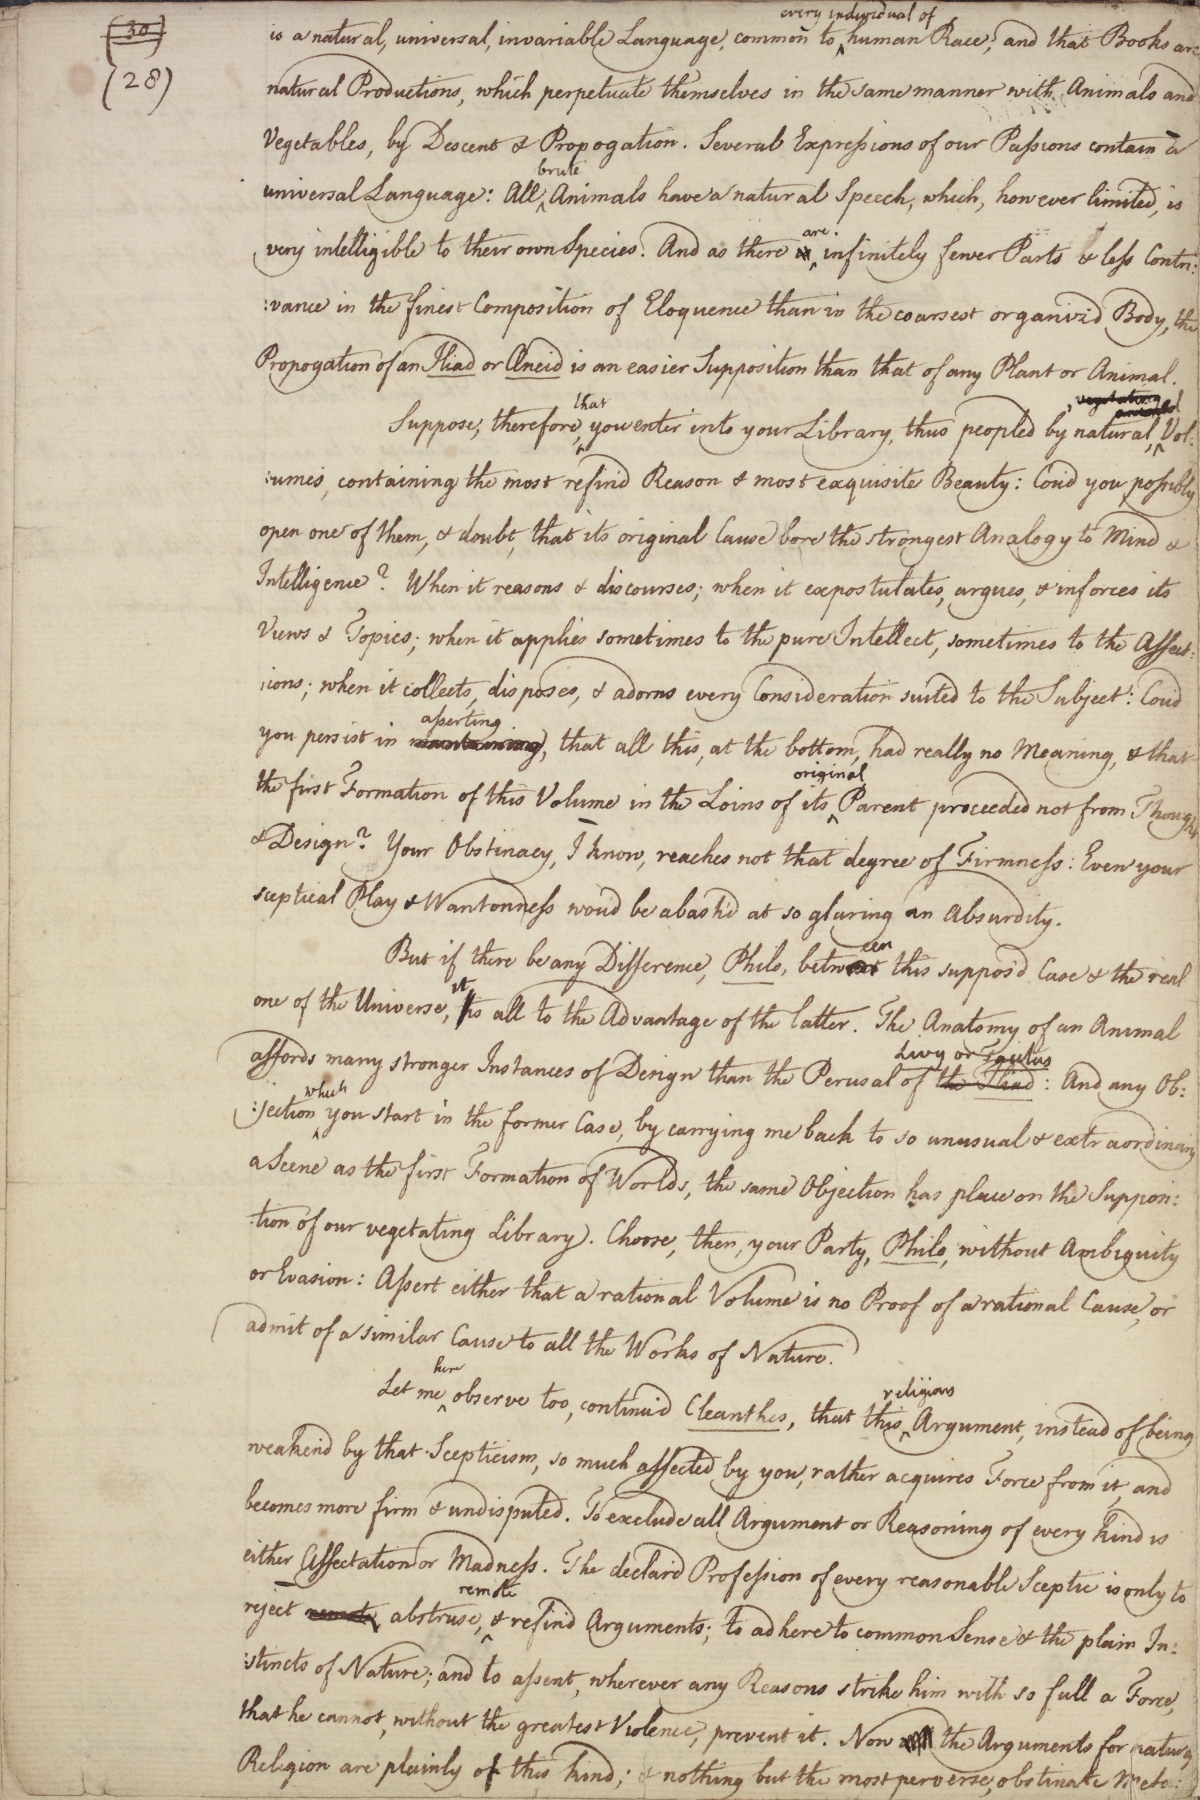 (30)
(28)
every individual of
is a natural, universal, invariable Language, common to human Race, and that Books are
natural Productions, which perpetuate themselves in the same manner with Animals and
Vegetables, by Descent & Propogation. Several Expressions of our Passions contain a
brute
universal Language: All Animals have a natural Speech, which, however limited, is
are
very intelligible to their own Species. And as there is infinitely fewer Parts & less Contri:
:vance in the finest Composition of Eloquence than in the coarsest organiz'd Body, the
Propogation of an Iliad or Æneid is an easier Supposition than that of any Plant or Animal.
that vegetating
Suppose, therefore, you enter into your Library, thus peopled by natural, Vol:
:umes, containing the most refin'd Reason & most exquisite Beauty: Cou'd you possibly
open one of them, & doubt, that its original Cause bore the strongest Analogy to Mind &
Intelligence? When it reasons & discourses; when it expostulates, argues, & inforces its
Views & Topics; when it applies sometimes to the pure Intellect, sometimes to the Affect:
:ions; when it collects, disposes, & adorns every Consideration suited to the Subject: Cou'd
asserting
you persist in maintaining, that all this, at the bottom, had really no Meaning, & that
original
the first Formation of this Volume in the Loins of its Parent proceeded not from Thought
& Design? Your Obstinacy, I know, reaches not that degree of Firmness: Even your
sceptical Play & Wantonness wou'd be abash'd at so glaring an Absurdity.
een
But if there be any Difference, Philo, betw this suppos'd Case & the real
it
one of the Universe, is all to the Advantage of the latter. The Anatomy of an Animal
Livy or Tacitus
affords many stronger Instances of Design than the Perusal of the Iliad: And any Ob:
which
:jection you start in the former Case, by carrying me back to so unusual & extraordinary
a Scene as the first Formation of Worlds, the same Objection has place on the Supposi:
:tion of our vegetating Library. Choose, then, your Party, Philo, without Ambiguity
or Evasion: Assert either that a rational Volume is no Proof of a rational Cause, or
admit of a similar Cause to all the Works of Nature.
here religious
Let me observe too, continu'd Cleanthes, that this Argument, instead of being
weaken'd by that Scepticism, so much affected by you, rather acquires Force from it, and
becomes more firm & undisputed. To exclude all Argument or Reasoning of every kind is
either Affectation or Madness. The declar'd Profession of every reasonable Sceptic is only to
remote
reject remote abstruse, & refin'd Arguments; to adhere to common Sense & the plain In:
:stincts of Nature; and to assent, wherever any Reasons strike him with so full a Force,
that he cannot, without the greatest Violence, prevent it. Now the Arguments for natural
Religion are plainly of this kind; & nothing but the most perverse, obstinate Meta: